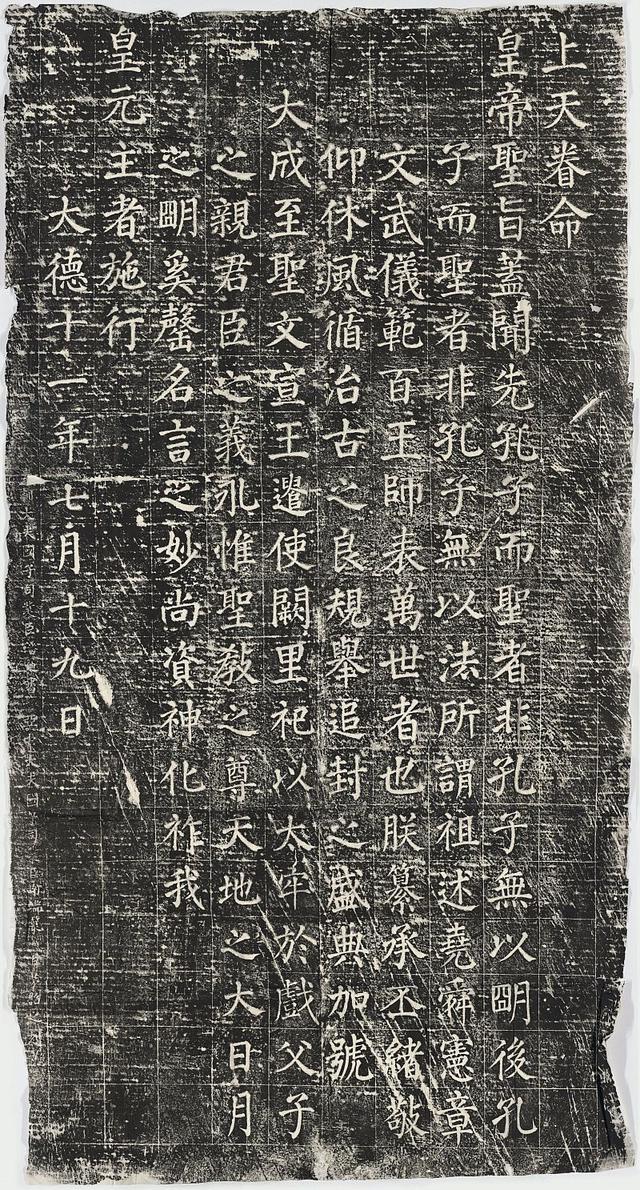 上天眷命
皇帝聖旨蓋聞先孔子而聖者非孔子無以明後孔
子而聖者非孔子無以法所謂祖述堯舜憲章
文武儀範百王師表萬世者也朕纂承丕緒敬
仰休風循治古之良規舉追封之盛典加號
大成至聖文宣王遣使闕里祀以太牢於戲父子
之親君臣之義永惟聖教之尊天地之大日月
之明奚罄名言之妙尚資神化祚我
皇元主者施行
大德十一年七月十九日